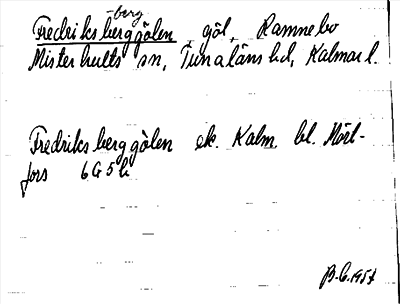 -berg
Fredriksberggölen, göl, Ramnebo
Misterhults sn, Tunaläns hd, Kalmar l.
Fredriksberggölen ek. Kalm. bl. Mört-
fors 6G5h
B.C. 1957